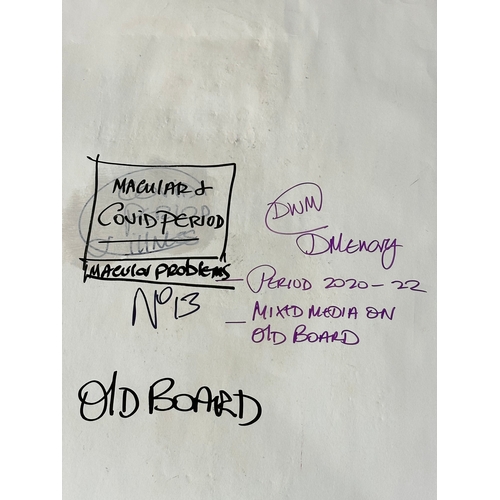 MACULAR &
COVID PERIOD
MACULAR PROBLEMS
No 13
OLD BOARD
DWM
DMEMORY
- PERIOD 2020-22
- MIXED MEDIA ON
OLD BOARD